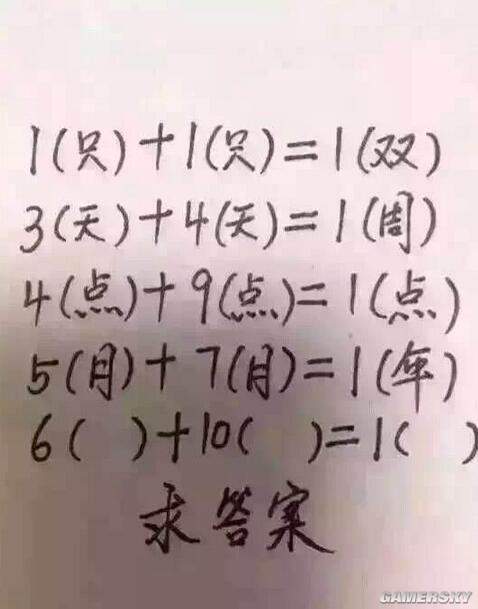 1(只)+1(只)=1(双)
3(天)+4(天)=1(周)
4(点)+9(点)=1(点)
5(月)+7(月)=1(年)
6( )+10( )=1( )
求答案
GAMERSKY